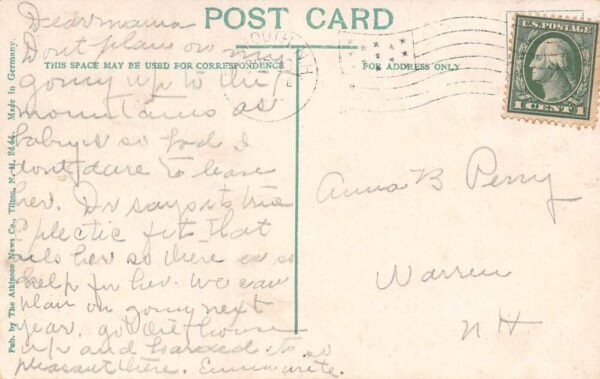 POST CARD
THIS SPACE MAY BE USED FOR CORRESPONDENCE
FOR ADDRESS ONLY
U.S. POSTAGE
1 CENT 1
Pub. by The Atkinson News Co., Tilton, N. H. 2444. Made in Germany.
Dear mama
Dont plan on my
going up to the
mountains as
baby is so bad I
dont dare to leave
her. Dr says its
plectic fits that
ails her so there is no
help for her. We can
plan on going next
year. got the house
up and boarded
pleasant there. Emma write.
Anna B Perry
Warren
N H